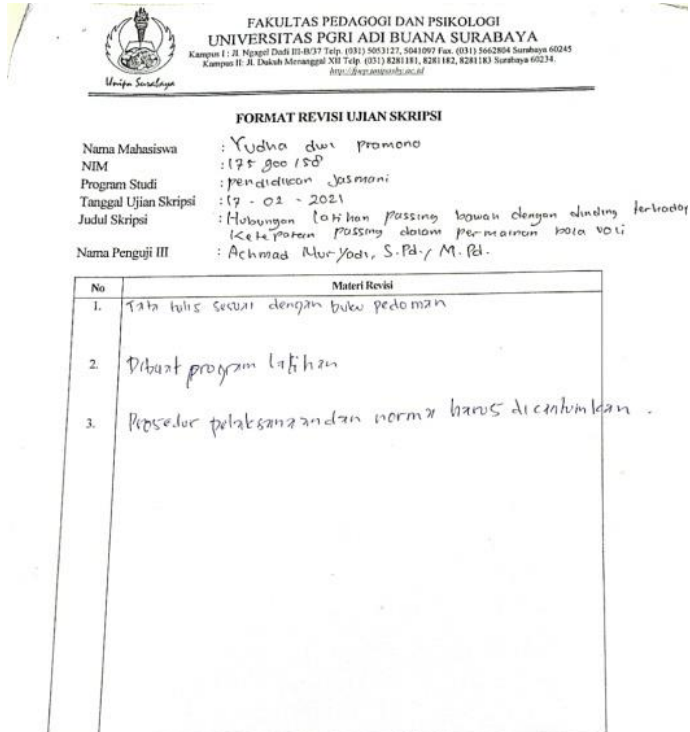 FAKULTAS PEDAGOGI DAN PSIKOLOGI
UNIVERSITAS PGRI ADI BUANA SURABAYA
Kampus I : Jl. Ngagel Dadi III-B/37 Telp. (031) 5053127, 5041097 Fax. (031) 5662804 Surabaya 60245
Kampus II: Jl. Dukuh Menanggal XII Telp. (031) 8281181, 8281182, 8281183 Surabaya 60234.
Unipa Surabaya
FORMAT REVISI UJIAN SKRIPSI
Nama Mahasiswa : Yudha dwi promono
NIM : 175 900 158
Program Studi : pendidikan Jasmani
Tanggal Ujian Skripsi : 17 - 02 - 2021
Judul Skripsi : Hubungan latihan passing bawah dengan dinding terhadap
Ketepatan passing dalam permainan bola voli
Nama Penguji III : Achmad Nur Yadi, S.Pd., M.Pd.
No Materi Revisi
1. Tata tulis sesuai dengan buku pedoman
2. Dibuat program latihan
3. Prosedur pelaksanaan dan norma harus dicantumkan.